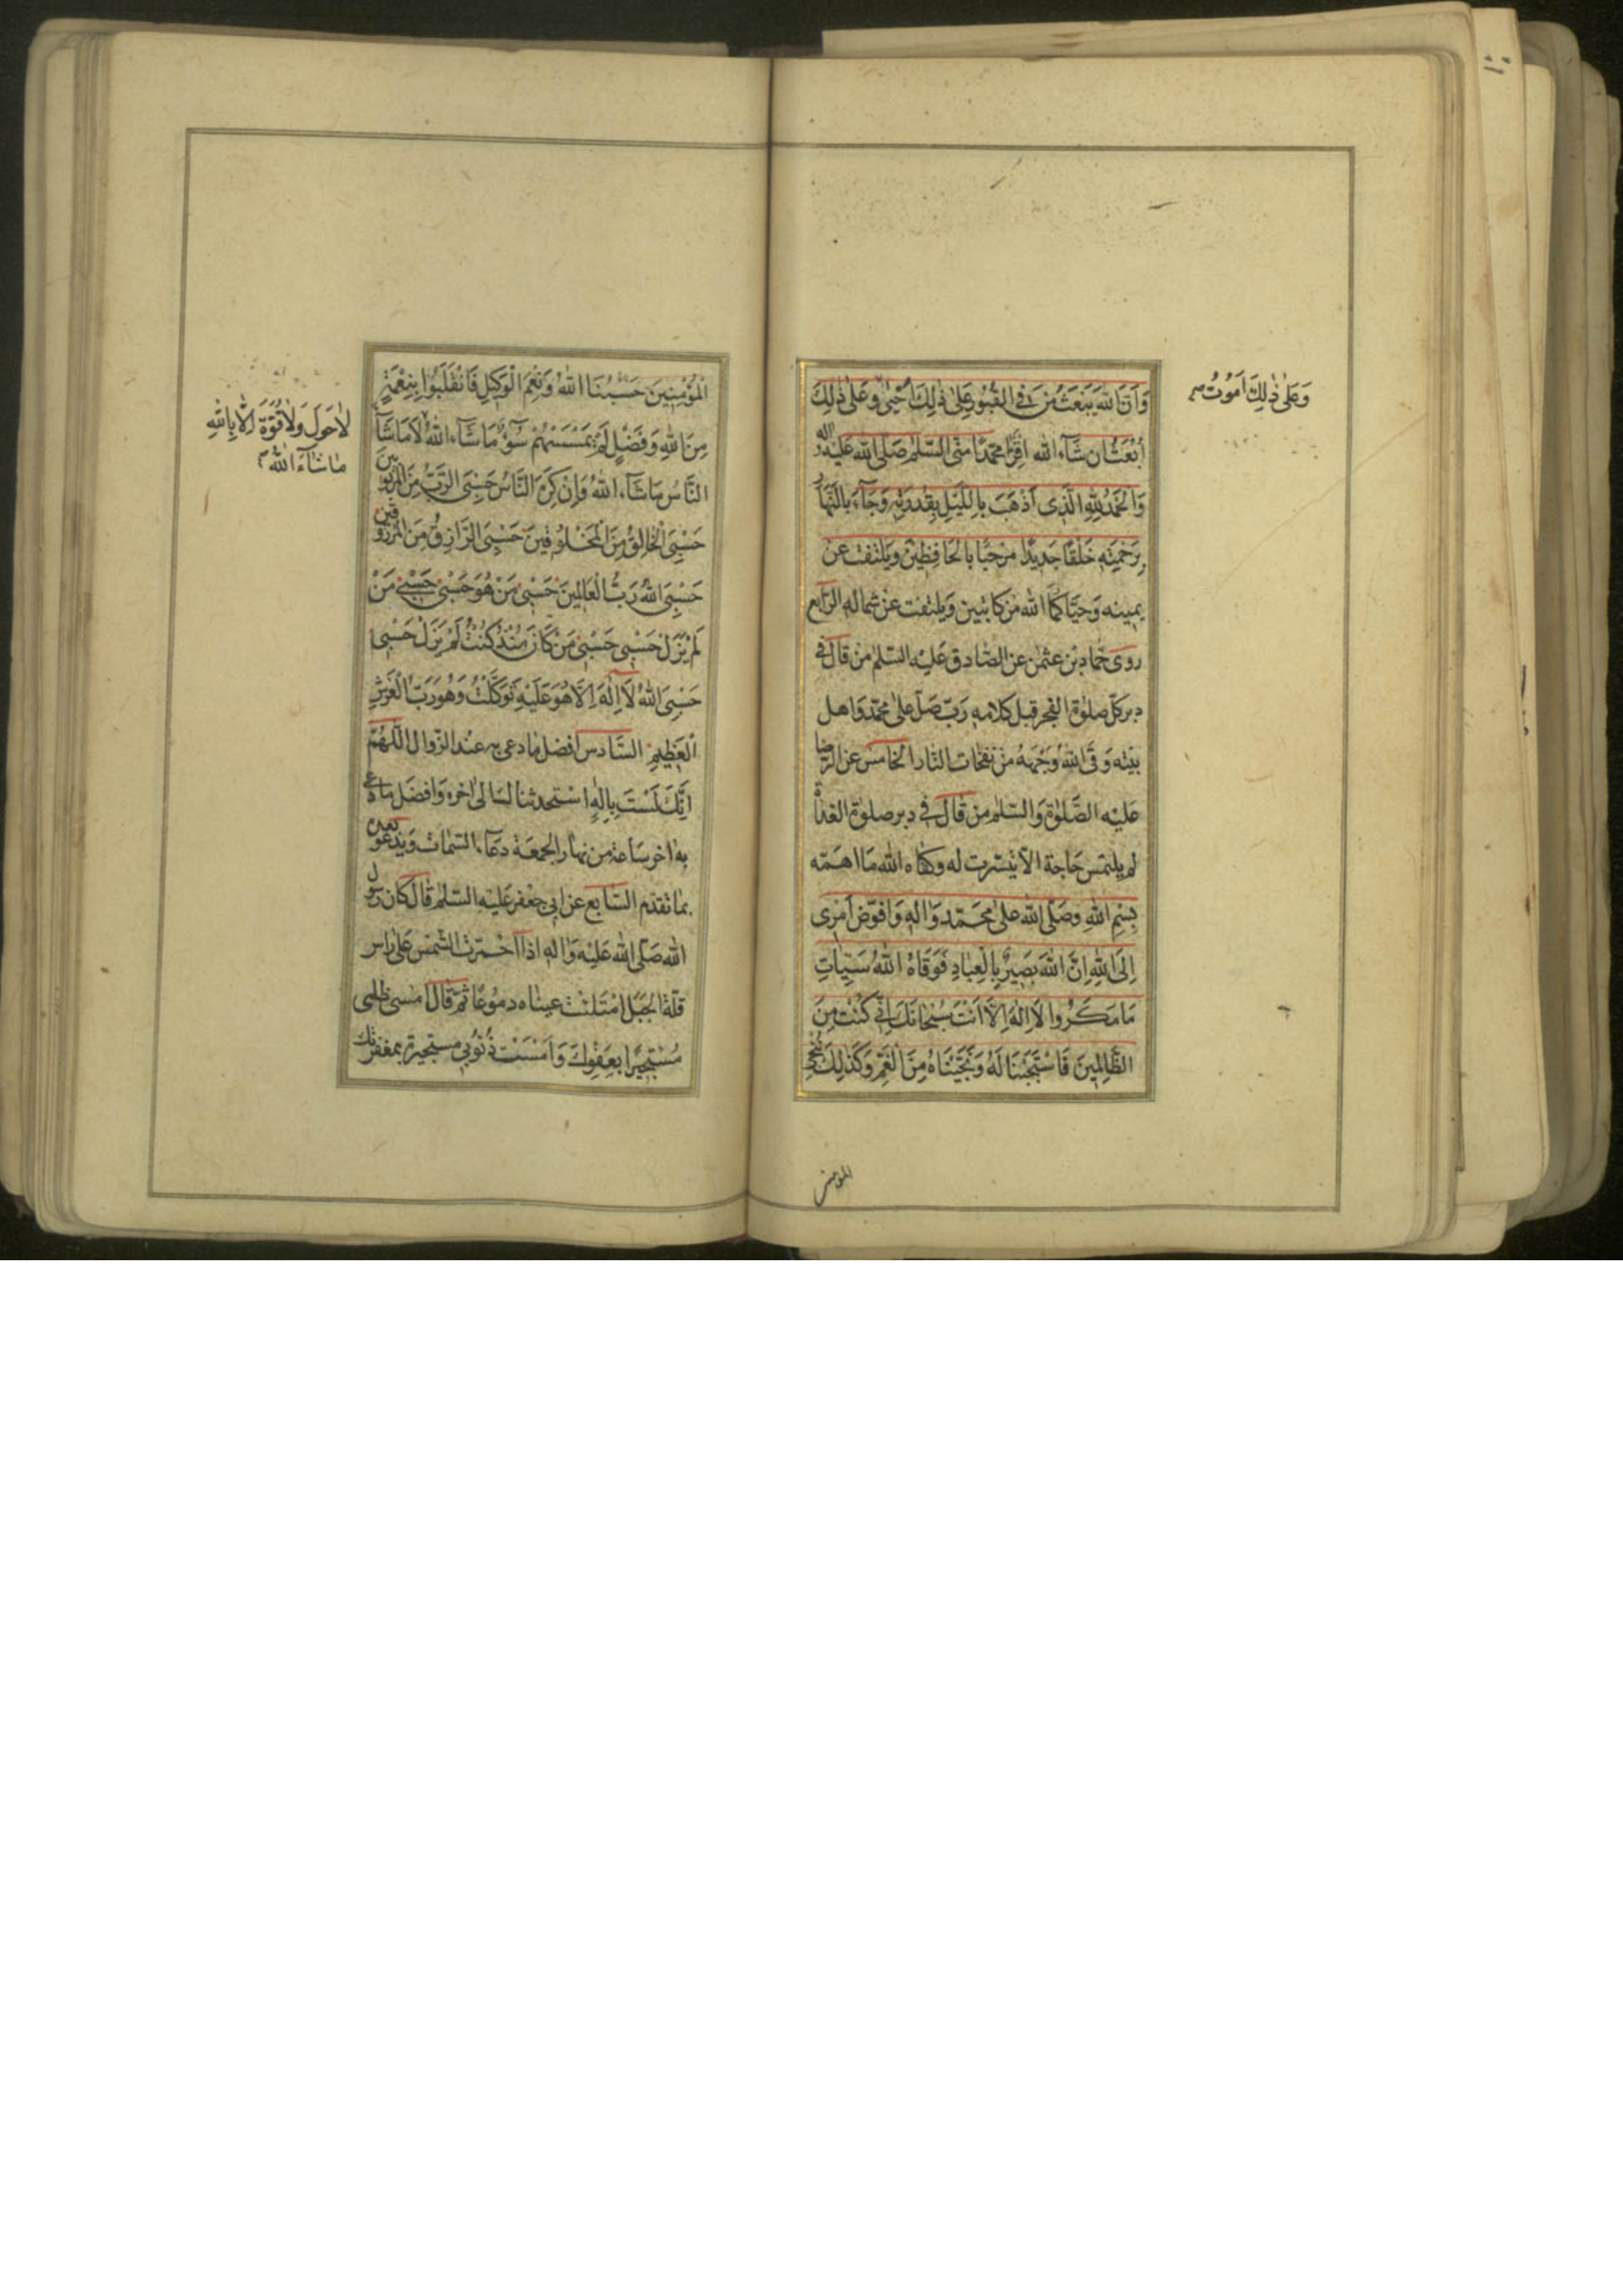 وَاَنَّ اللّٰهَ يَبْعَثُ مَنْ فِي الْقُبُورِ عَلىٰ ذٰلِكَ اَحْيىٰ وَعَلىٰ ذٰلِكَ
وَعَلىٰ ذٰلِكَ اَمُوتُ
اُبْعَثُ اِنْ شَآءَ اللّٰه اِقْرَأ محمّدًا منّى السّلٰم صَلّى اللّٰه عَليْه واله
وَالْحَمْدُ لِلّٰهِ الَّذِى اَذْهَبَ بِاللَّيْلِ بِقُدْرَتِهِ وَجَآءَ بِالنَّهَارِ
بِرَحْمَتِهِ خَلْقًا جَدِيدًا مرْحبًا بالحَافِظِيْن وَيلتفت عن
يمينه وَحيّاكُمَا اللّٰه مِن كاتبين وَيلتفت عَنْ شماله الرّابع
روى حمّاد بن عثمٰن عن الصّادق عَليْه السّلٰم من قال فى
دبر كلّ صلوٰة الفجر قبل كلامه رَبّ صَلّ علىٰ محمّد وَاهل
بيْته وَقَى اللّٰهُ وَجْهَهُ من نفحَات النّار الخامس عن الرّضا
عَليْه الصَّلوٰة وَالسّلٰم من قال فى دبر صلوٰة الغداة
لم يلتمس حَاجة الّا تيسّرت له وكفاه اللّٰه مَا اهَمّه
بِسْمِ اللّٰهِ وَصَلَّى اللّٰه عَلىٰ مُحَمَّد وَاٰلِهِ وَاُفَوِّضُ اَمْرِى
اِلَى اللّٰهِ اِنَّ اللّٰهَ بَصِيرٌ بِالْعِبٰادِ فَوَقَاهُ اللّٰهُ سَيِّئاتِ
مَا مَكَرُوا لَا اِلٰهَ اِلَّا اَنْتَ سُبْحَانَكَ اِنّى كُنْتُ مِنَ
الظَّالِمِينَ فَاسْتَجَبْنَا لَهُ وَنَجَّيْنَاهُ مِنَ الْغَمِّ وَكَذٰلِكَ نُنْجِى
المؤمنين
الْمُؤْمِنِينَ حَسْبُنَا اللّٰهُ وَنِعْمَ الْوَكِيلُ فَانْقَلَبُوا بِنِعْمَةٍ
مِنَ اللّٰهِ وَفَضْلٍ لَمْ يَمْسَسْهُمْ سُوۤءٌ مَا شَآءَ اللّٰهُ لَا مَا شَآءَ
لٰا حَوْلَ وَلٰا قُوَّةَ اِلّٰا بِاللّٰهِ
مٰا شٰآءَ اللّٰهُ
النَّاسُ مَا شَآءَ اللّٰهُ وَاِنْ كَرِهَ النَّاسُ حَسْبِىَ الرَّبُّ مِنَ الْمَرْبُوبِينَ
حَسْبِىَ الْخَالِقُ مِنَ الْمَخْلُوقِينَ حَسْبِىَ الرَّازِقُ مِنَ الْمَرْزُوقِينَ
حَسْبِىَ اللّٰهُ رَبُّ الْعَالَمِينَ حَسْبِى مَنْ هُوَ حَسْبِى حَسْبِى مَنْ
لَمْ يَزَلْ حَسْبِى حَسْبِى مَنْ كَانَ مُنْذُ كُنْتُ لَمْ يَزَلْ حَسْبِى
حَسْبِىَ اللّٰهُ لَا اِلٰهَ اِلَّا هُوَ عَلَيْهِ تَوَكَّلْتُ وَهُوَ رَبُّ الْعَرْشِ
الْعَظِيمِ السَّادس افضل مَا دعى به عند الزّوال اللّٰهُمَّ
اِنَّكَ لَسْتَ بِاِلٰهٍ اسْتحدثنا لـ الى اٰخره وَافضَل ما دعى
به اٰخر سَاعة من نهار الجمعَة دعَآء السّمٰات وَيدعو بعده
بما تقدّم السّابع عن ابى جعْفر عَليْه السّلٰم قال كان رسول
اللّٰه صَلّى اللّٰه عَليْه وَاٰله اذا احْمرّت الشّمْس عَلىٰ راس
قلّة الجبَل امْتَلئت عيْناه دمُوعًا ثمّ قال اَمْسى ظلمى
مُسْتَجِيرًا بِعَفْوِكَ وَاَمْسَتْ ذُنُوبى مستجيرة بمغفرتك